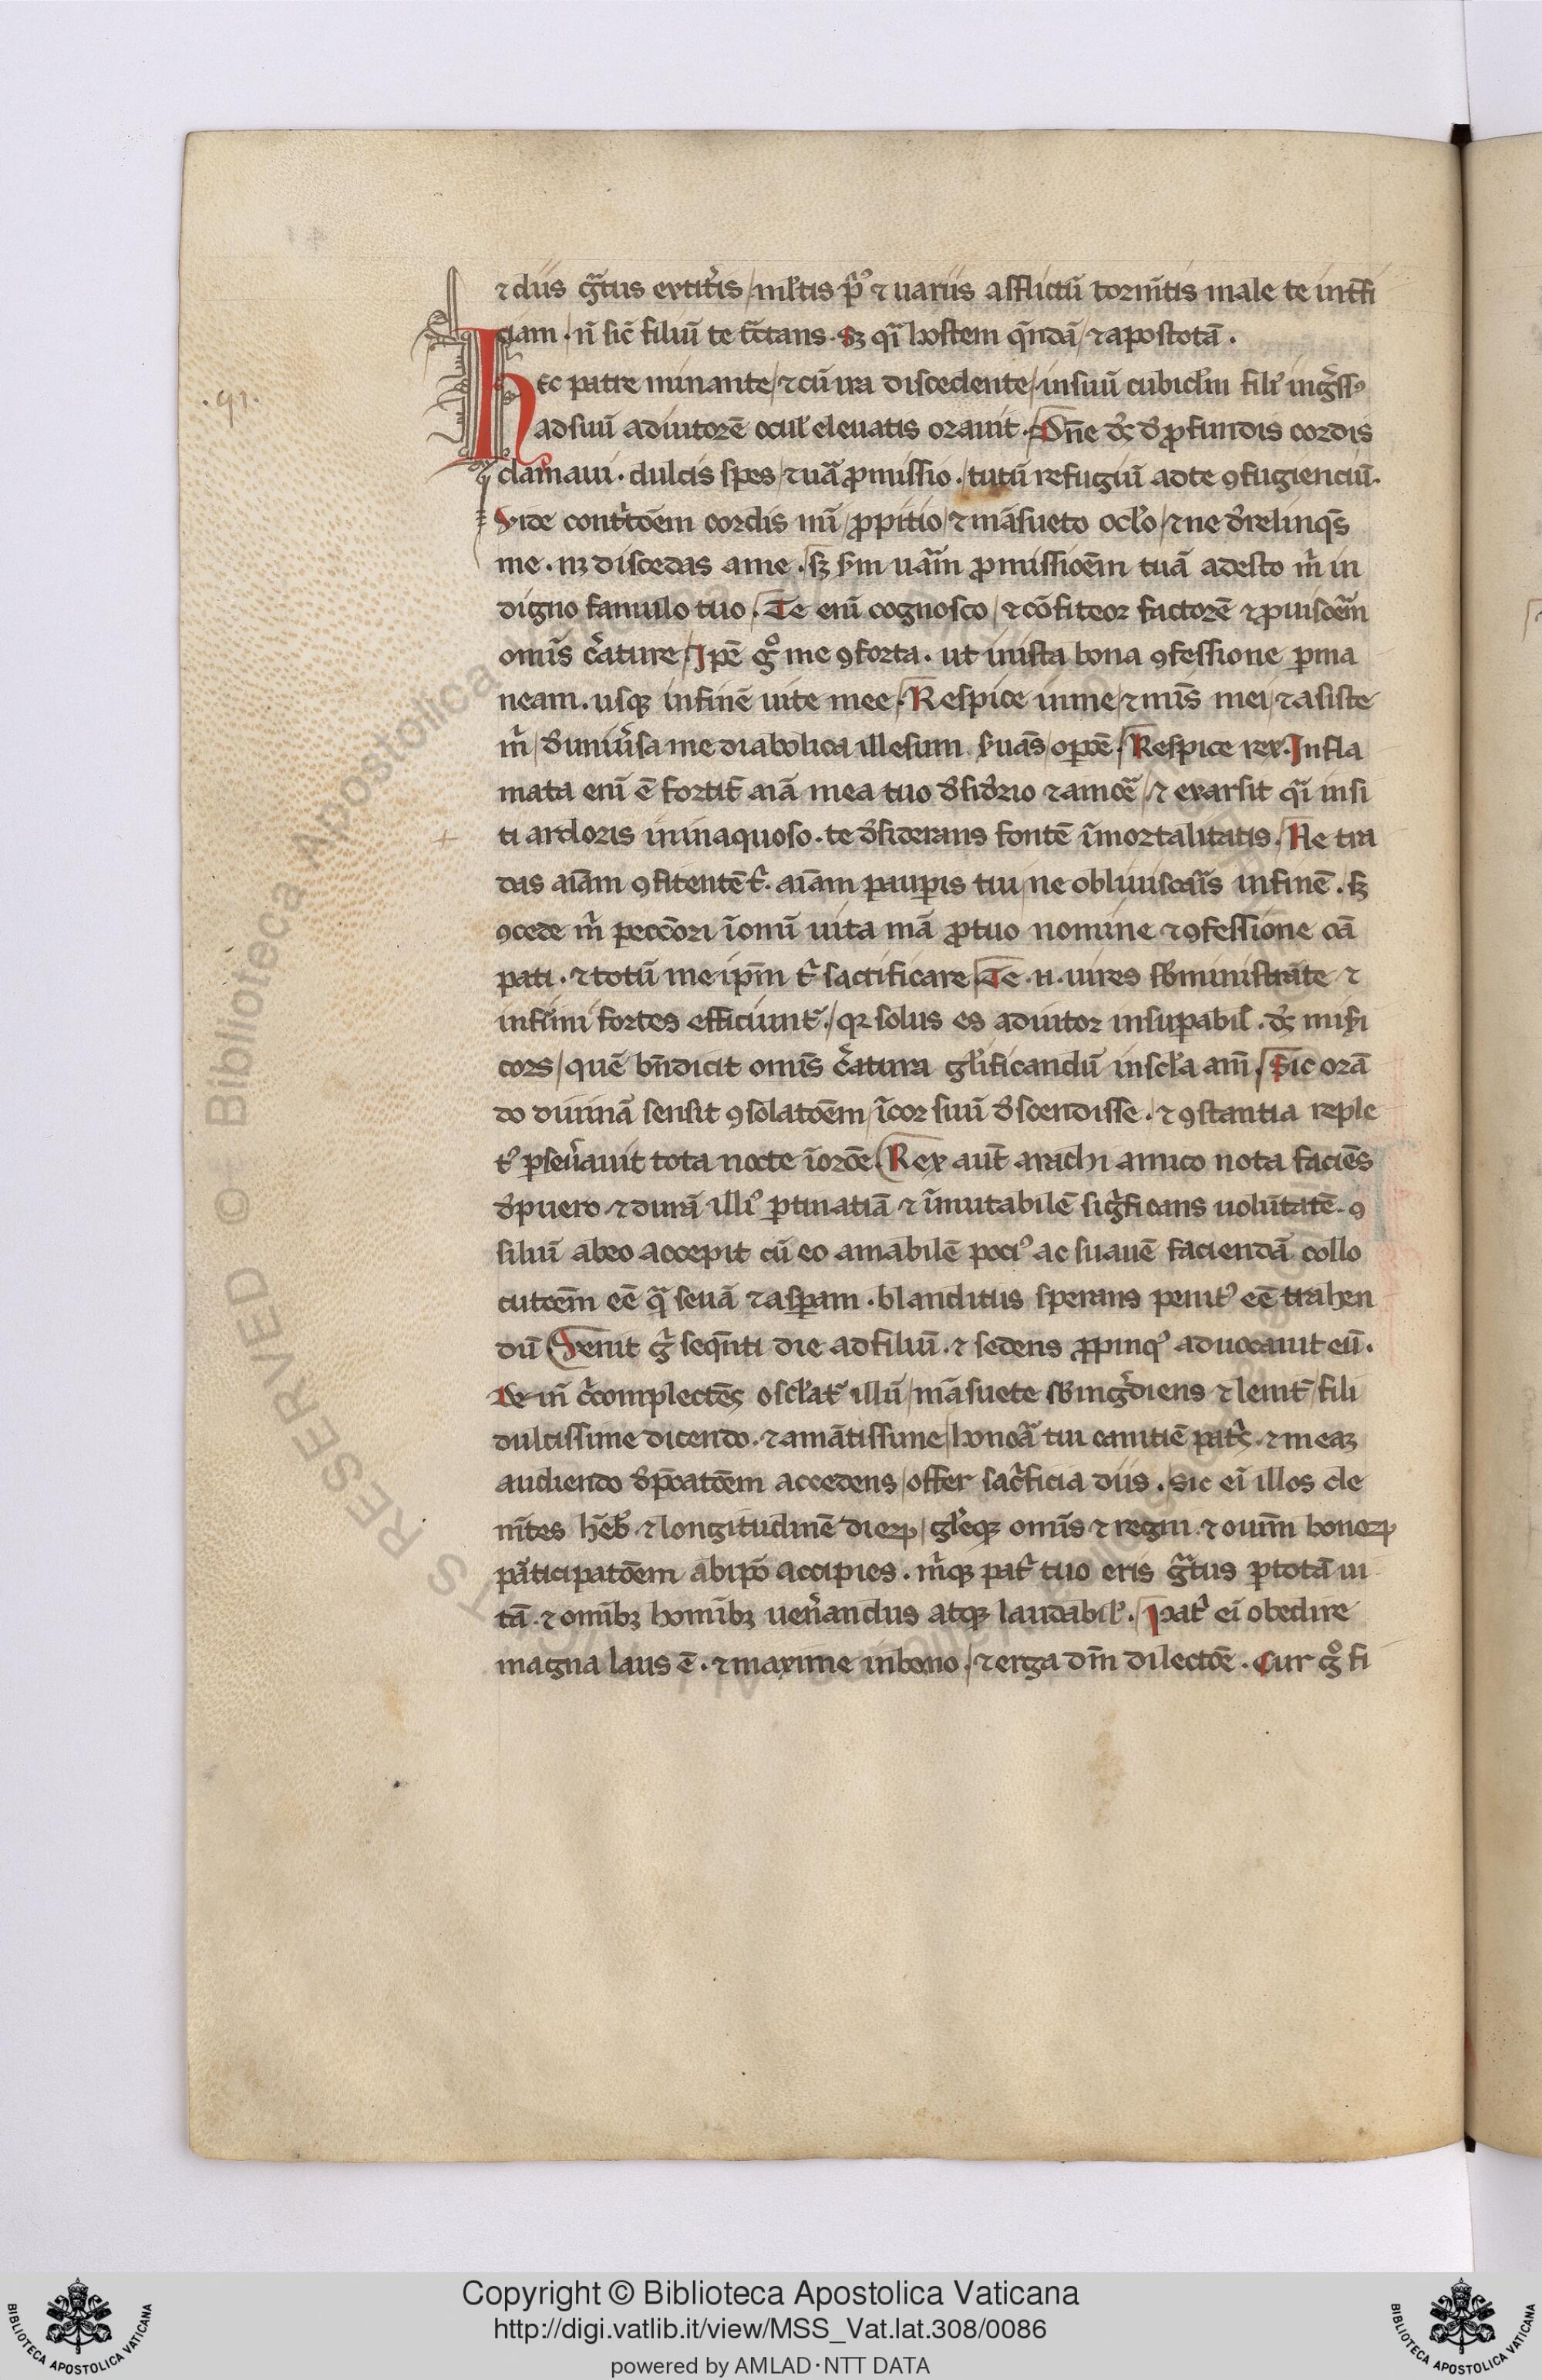 ⁊ diis gr̃tus extitis / ml'tis pͥꝰ ⁊ uariis afflictũ torm̃tis male te int̃fi
ciam · ñ sic̃ filiũ te t̃ctans · sꝫ qͣi hostem q̃ndã / ⁊ apostotã .
.91.
Hec patre minante / ⁊ cũ ira discedente / in suũ cubicl'm fili' ing̃ssꝰ
ad suũ adiutorẽ ocul' eleuatis orauit · Dñe dꝫ d' ꝓfundis cordis
clamaui · dulcis spes / ⁊ uãꝓmissio . / tutũ refugiũ ad te ꝯfugienciũ .
Vide contr̃tõem cordis mĩ / ꝓpitio / ⁊ mãsueto ocl'o / ⁊ ne d'relinq̃s
me . nꝫ discedas a me . sꝫ sm̃ uãm ꝓmissiõem tuã adesto m̃ in
digno famulo tuo . Te enĩ cognosco / ⁊ cõfiteor factorẽ ⁊ ꝓuisoẽm
omĩs cr̃ature / Ip̃e gͦ me ꝯforta . ut in ista bona ꝯfessione ꝑma
neam . usqꝫ in finẽ uite mee . Respice in me / ⁊ mis̃ mei / ⁊ asiste
m̃ / d' uniũsa me diabolica illesum ẜuãs / oꝑõe . Respice rex . Infla
mata enĩ ẽ fortit̃ aĩa mea tuo d'sid'rio ⁊ amoẽ / ⁊ exarsit qͣi in si
ti ardoris in inaquoso . te d'siderans fontẽ ĩmortalitatis . Ne tra
das aĩam ꝯfitentẽ tͥ . aĩam pauꝑis tui / ne obliuiscaĩs in finẽ . sꝫ
ꝯcede m̃ peccõri ĩ om̃i uita mã ꝓ tuo nomine ⁊ ꝯfessione oĩã
pati . ⁊ totũ me ip̃m tͥ sac̃ificare Te . n . uires sb̃ministrãte ⁊
infirmi fortes efficiunt̃ . / qꝛ solus es adiutor insuꝑabil' . dꝫ misi
cors / quẽ bñdicit omĩs cr̃atura gl'ificandũ in scl'a am̃ . Sic orã
do diuinã sensit ꝯsolatõem / ĩ cor suũ d'scendisse . ⁊ ꝯstantia reple
tꝰ ꝑseũauit tota nocte ĩ orõe . Rex aut̃ arachi amico nota faciẽs
d' puero . ⁊ durã illiꝰ ꝑtinatiã ⁊ ĩmutabilẽ sig̃ficans uolũtatẽ . ꝯ
siliũ ab eo accepit cũ eo amabilẽ pociꝰ ac suauẽ faciendã collo
cutõem eẽ qͣ̃ seuã ⁊ asꝑam . blanditiis sperans penitꝰ eẽ trahen
dũ Venit gͦ seq̃nti die ad filiũ . ⁊ sedens ꝓpinqꝰ aduocauit eũ .
De in̄ c̃complectẽs oscl'atꝰ illũ / mãsuete sb̃ing̃diens ⁊ lenit̃ / fili
dulcissime dicendo . ⁊ amãtissime / honoã tui canitiẽ patͥs . ⁊ meaꝫ
audiendo d'p̃catõem accedens / offer sac̃ficia diis . sic eĩ illos cle
m̃tes h̃eb' ⁊ longitudinẽ dieꝝ / gl'eqꝫ omĩs ⁊ regni . ⁊ oium̃ bonoꝝ
pãticipatõem ab ip̃o accipies . m̃qꝫ patͥ tuo eris gr̃tus ꝑ totã ui
tã . ⁊ omĩbꝫ homĩbꝫ ueñandus atqꝫ laudabil' . Patͥ eĩ obedire
magna laus ẽ . ⁊ maxime in bono / ⁊ erga dm̃ dilectõe . Cur gͦ fi
Copyright © Biblioteca Apostolica Vaticana
http://digi.vatlib.it/view/MSS_Vat.lat.308/0086
powered by AMLAD·NTT DATA